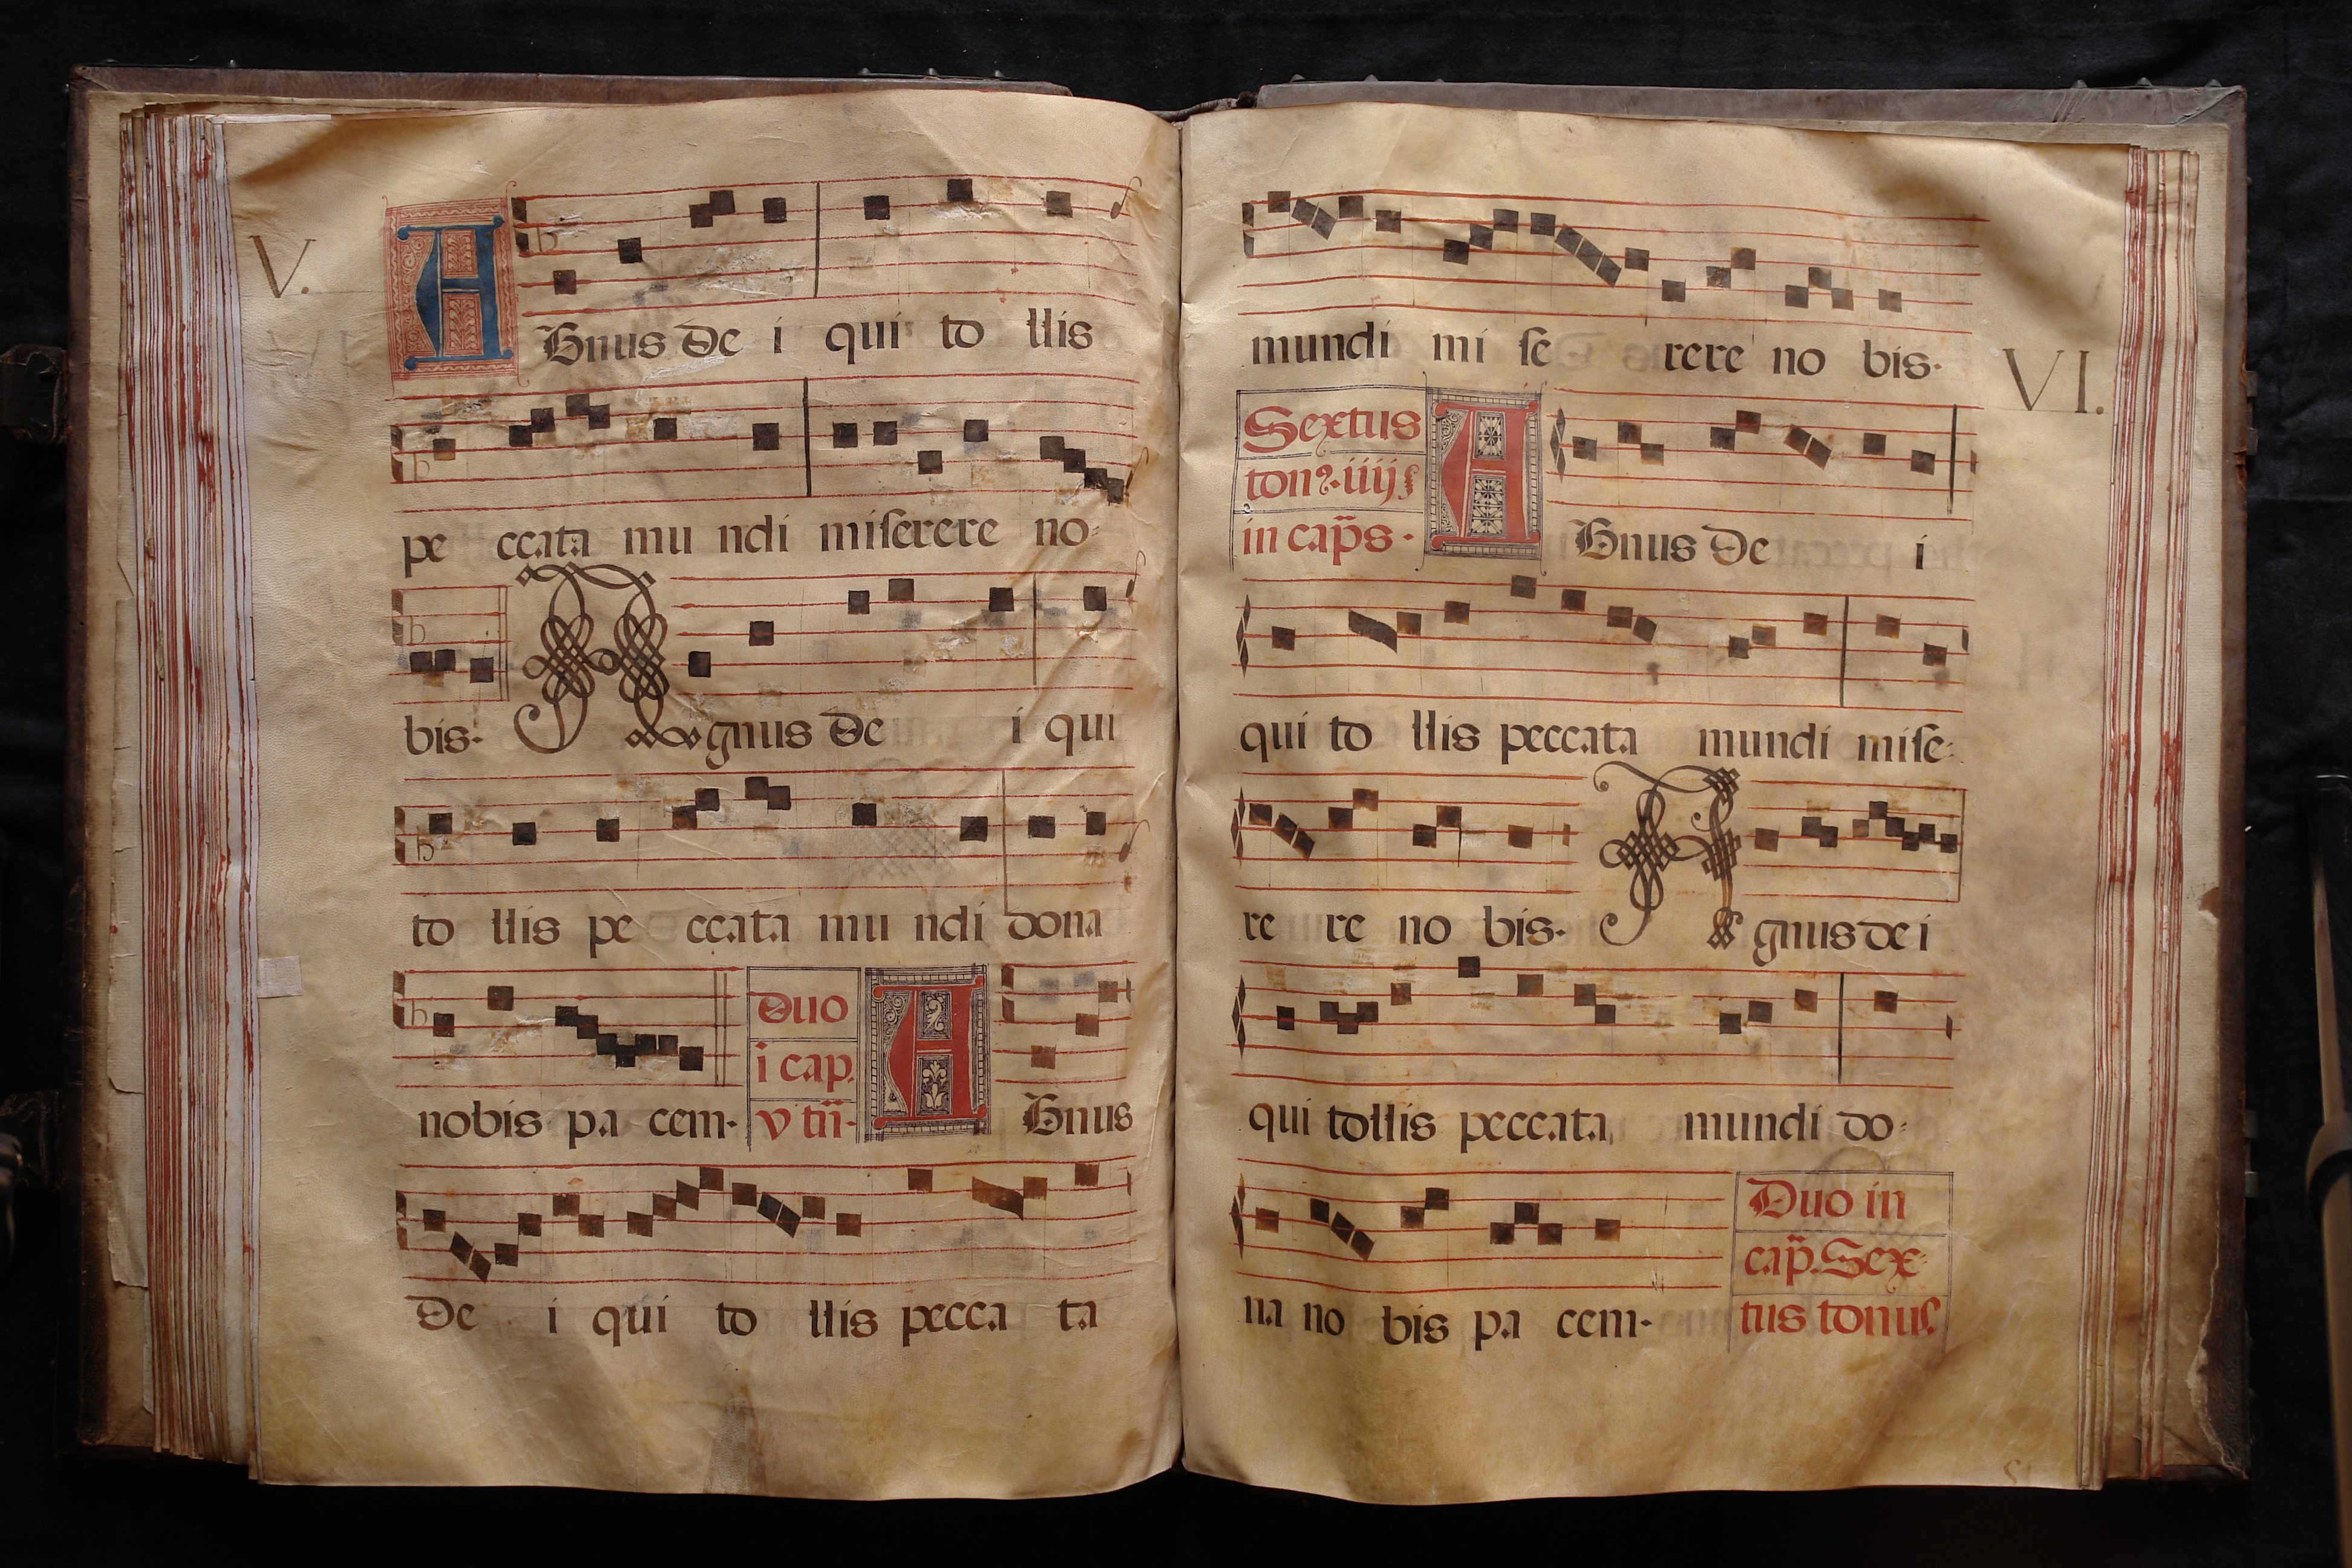 V.
AGnus De i qui to llis
pe ccata mu ndi miserere no=
bis. Agnus De i qui
to llis pe ccata mu ndi dona
Duo
i cap.
nobis pa cem. v tñ. AGnus
De i qui to llis pecca ta
mundi mi se rere no bis.
VI.
Sextus
ton9. iiij
in cap̃s. AGnus De i
qui to llis peccata mundi mise=
re re no bis. Agnus de i
qui tollis peccata mundi do=
Duo in
cap̃. Sex=
na no bis pa cem. tus tonus